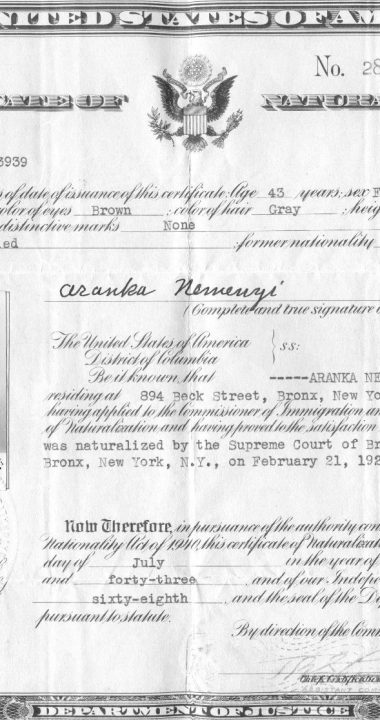 UNITED STATES OF AM
No. 28
ATE OF NATURA
3939
of date of issuance of this certificate: Age 43 years; sex F
color of eyes Brown ; color of hair Gray ; heig
distinctive marks None
ied ; former nationality
Aranka Nemenyi
(Complete and true signature o
The United States of America
District of Columbia } ss:
Be it known, that -----ARANKA NE
residing at 894 Beck Street, Bronx, New Yo
having applied to the Commissioner of Immigration an
of Naturalization and having proved to the satisfaction
was naturalized by the Supreme Court of Br
Bronx, New York, N.Y., on February 21, 192
Now Therefore, in pursuance of the authority con
Nationality Act of 1940, this certificate of Naturaliza
day of July in the year of
and forty-three , and of our Indep
sixty-eighth , and the seal of the De
pursuant to statute.
By direction of the Comm
DEPARTMENT OF JUSTICE